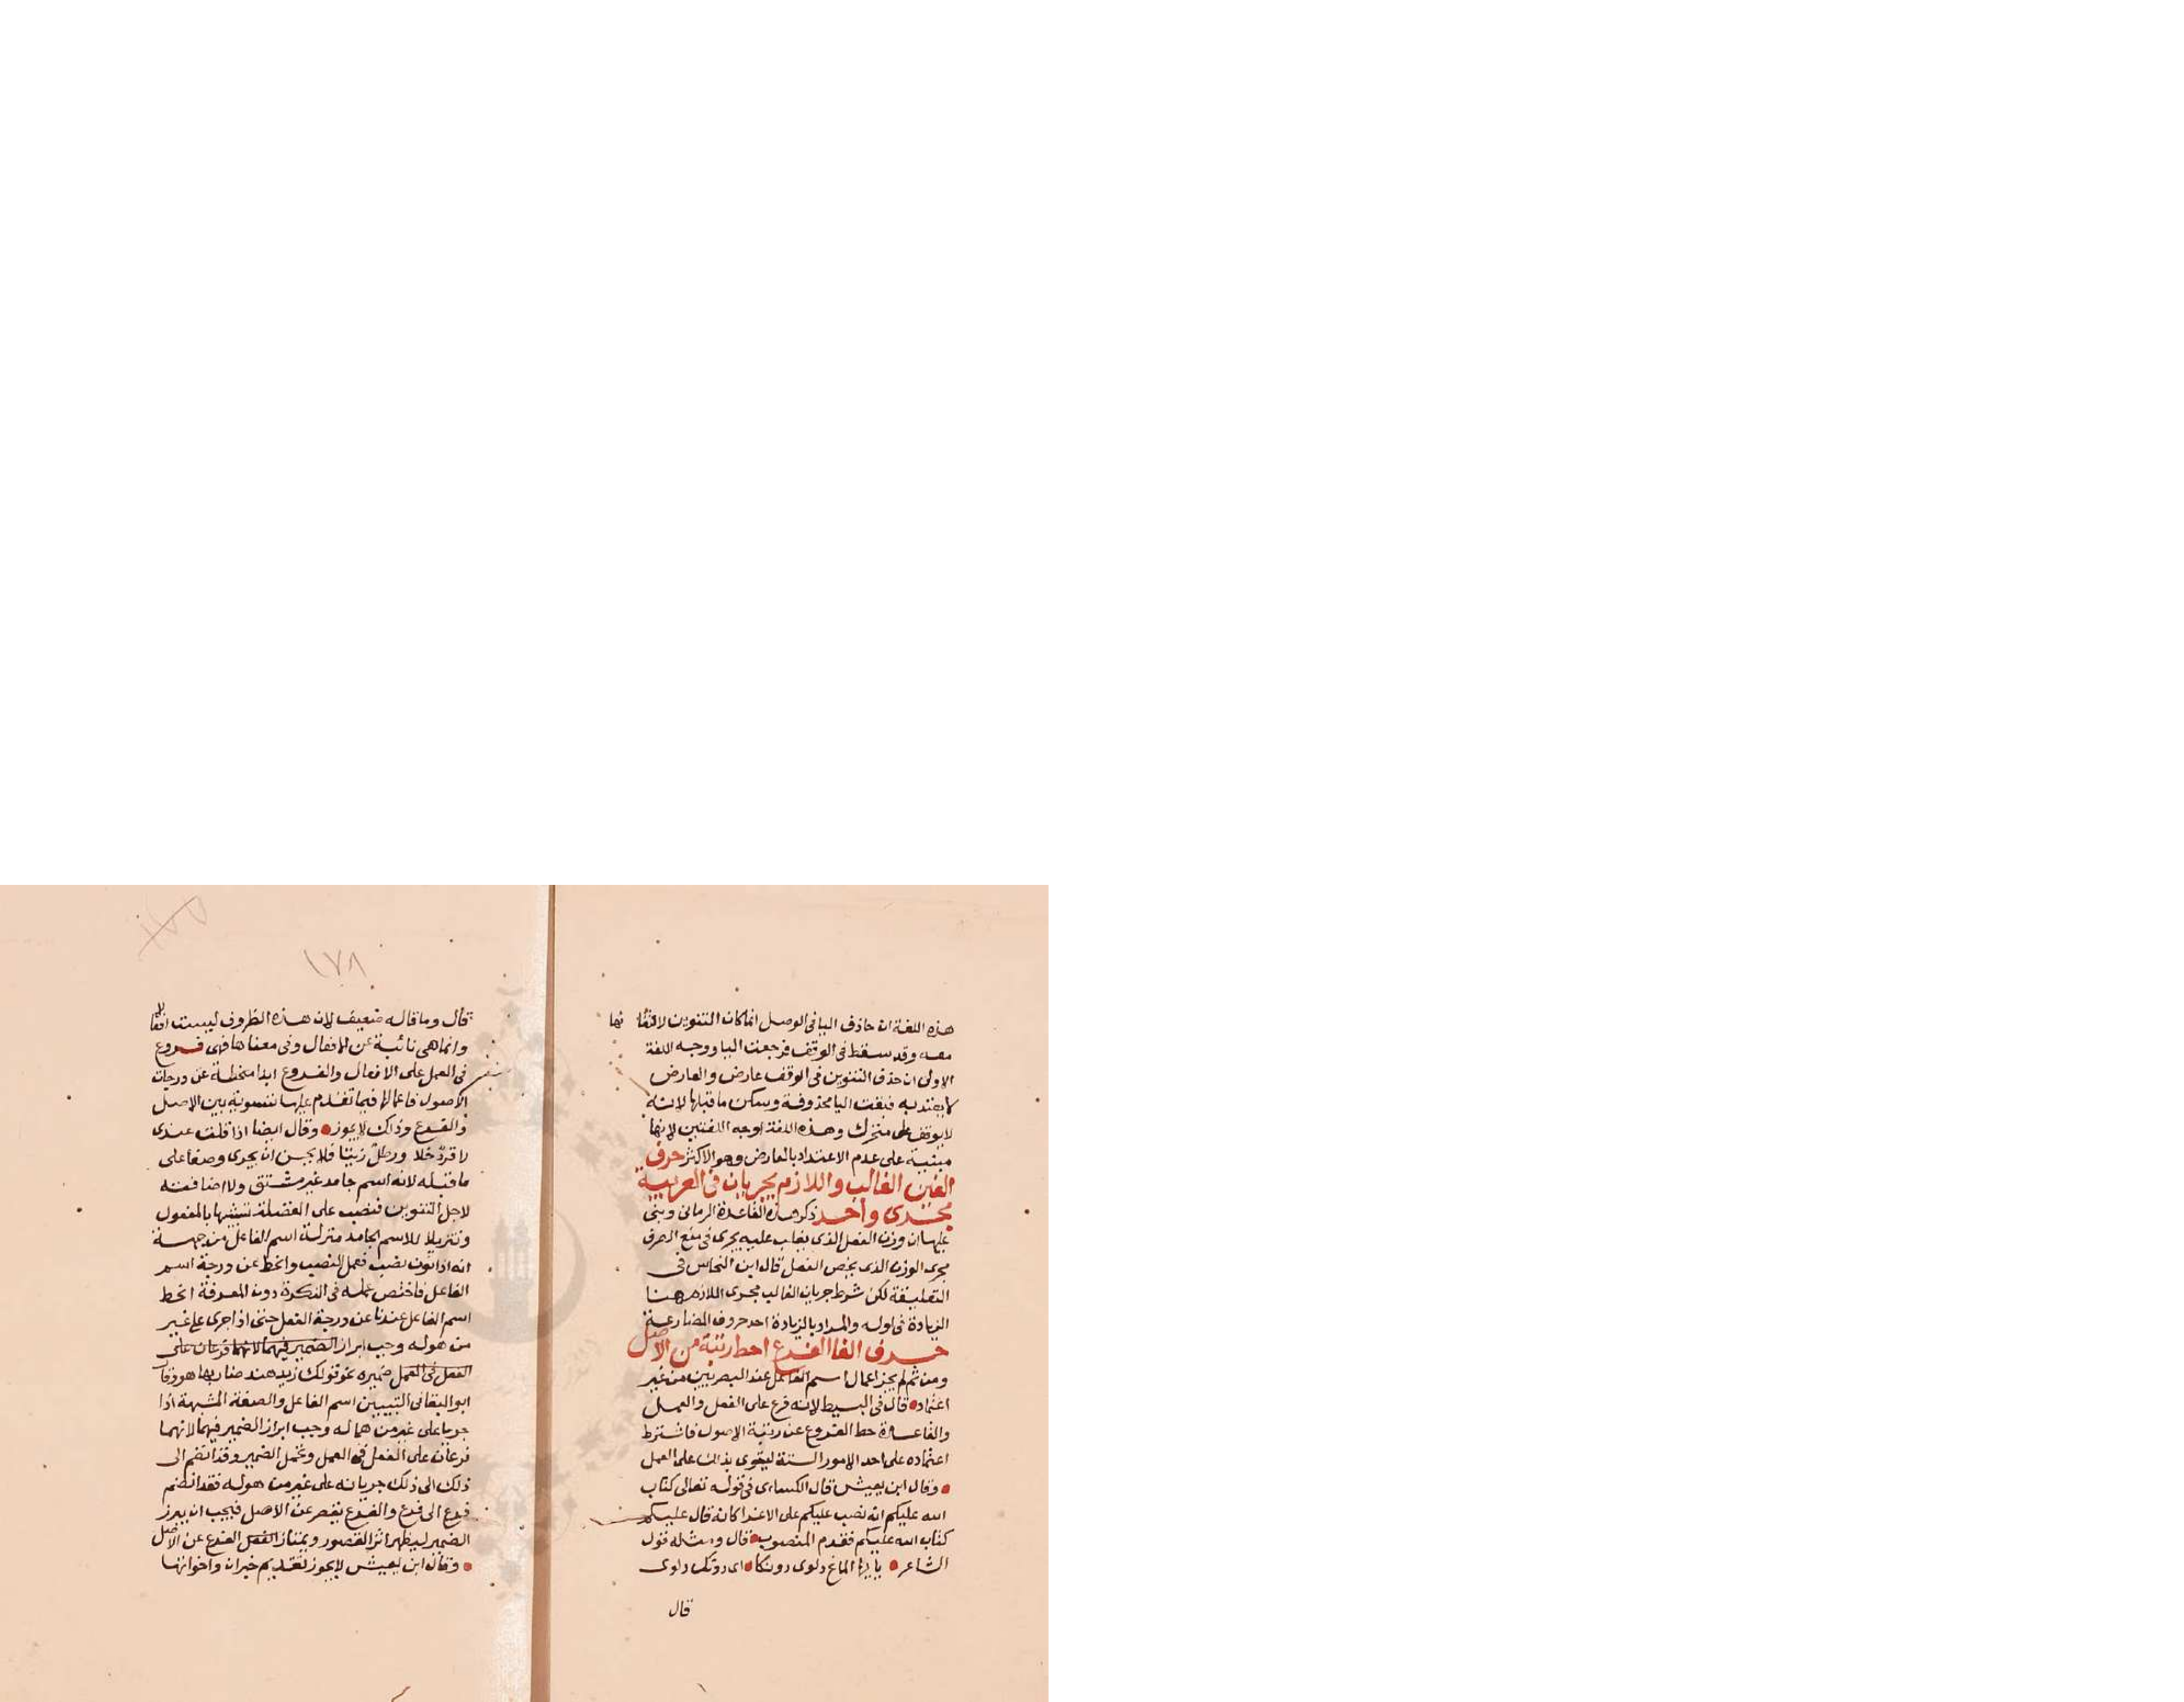 هذه اللغة ان حاذف اليا فى الوصل انما كان التنوين لالتقا ئها
معه وقد سقط فى الوقف فرجعت اليا ووجه اللغة
الاولى ان حذف التنوين فى الوقف عارض والعارض
لا يعتد به فبقت اليا محذوفة وسكن ما قبلها لانه
لا يوقف على متحرك وهذه اللغة اوجه اللغتين لانها
مبنية على عدم الاعتداد بالعارض وهو الاكثر حرف
الغين الغالب واللازم يجريان فى العربية
مجرى واحد ذكر هذه القاعدة الرمانى وبنى
عليها ان وزن الفعل الذى يغلب عليه يجرى فى منع الصرف
مجرى الوزن الذى يخص الفعل قال ابن النحاس فى
التعليقة لكن شرط جريان الغالب مجرى اللازم هنا
الزيادة فى اوله والمراد بالزيادة احد حروف المضارعة
حرف الفا الفرع احط رتبة من الاصل
ومن ثم لم يجز اعمال اسم الفاعل عند البصريين من غير
اعتماد قال فى البسيط لانه فرع على الفعل والعمل
والقاعدة حط الفروع عن رتبة الاصول فاشترط
اعتماده على احد الامور الستة ليقوى بذلك على العمل
وقال ابن يعيش قال الكساءى فى قوله تعالى كتاب
الله عليكم انه نصب عليكم على الاغرا كانه قال عليكم
كتاب الله عليكم فقدم المنصوب قال ومثله قول
الشاعر يا ايها المائح دلوى دونكا اى دونك دلوى
قال
١٧٨
قال وما قاله ضعيف لان هذه الظروف ليست افعالا
وانما هى نائبة عن الافعال وفى معناها فهى فروع
فى العمل على الافعال والفروع ابدا منحطة عن درجات
الاصول فاعمالها فيما تقدم عليها تسوية بين الاصل
والفرع وذلك لا يجوز وقال ايضا اذا قلت عندى
راقود خلا ورطل زيتا فلا يحسن ان يجرى وصفا على
ما قبله لانه اسم جامد غير مشتق ولا اضافته
لاجل التنوين فنصب على الفضلة تشبيها بالمفعول
وتنزيلا للاسم الجامد منزلة اسم الفاعل من جهة
انه اذا نون نصب فعمل النصب وانحط عن درجة اسم
الفاعل فاختص عمله فى النكرة دون المعرفة انحط
اسم الفاعل عندنا عن درجة الفعل حتى اذا جرى على غير
من هو له وجب ابراز الضمير فيهما لانهما فرعان على
الفعل فى العمل ضميره نحو قولك زيد هند ضاربها هو وقال
ابو البقا فى التبيين اسم الفاعل والصفة المشبهة اذا
جريا على غير من هما له وجب ابراز الضمير فيهما لانهما
فرعان على الفعل فى العمل وتحمل الضمير وقد انضم الى
ذلك الى ذلك جريانه على غير من هو له فقد انضم
فرع الى فرع والفرع يقصر عن الاصل فيجب ان يبرز
الضمير ليظهر اثر القصور ويمتاز الفعل الفرع عن الاصل
وقال ابن يعيش لا يجوز تقديم خبر ان واخواتها